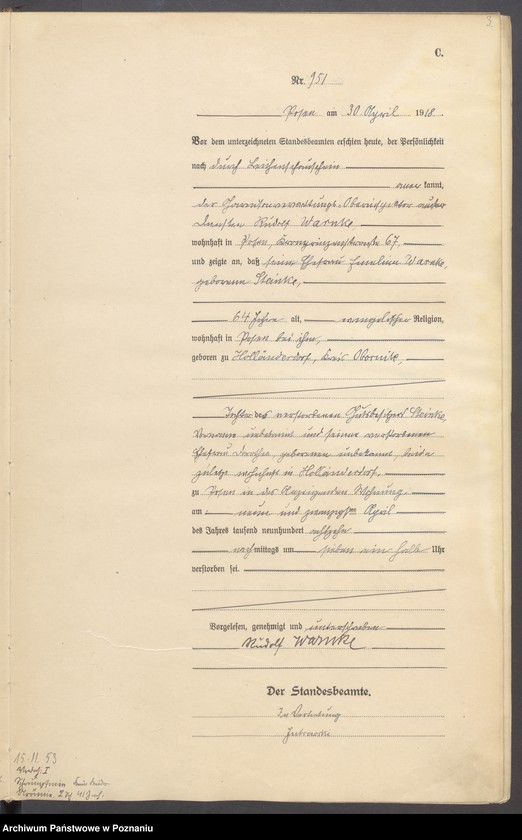 3
C.
Nr. 951
Posen am 30 April 1918.
Vor dem unterzeichneten Standesbeamten erschien heute, der Persönlichkeit
nach durch Leichenschauschein
aner kannt,
der Garnisonverwaltungs-Oberinspektor außer
Diensten Rudolf Warnke,
wohnhaft in Posen, Kronprinzenstraße 67,
und zeigte an, daß seine Ehefrau Emeline Warnke,
geborene Steinke,
64 Jahre alt, evangelischer Religion,
wohnhaft in Posen bei ihm,
geboren zu Holländerdorf, Kreis Obornik,
Tochter des verstorbenen Gutsbesitzers Steinke,
Vorname unbekannt und seiner verstorbenen
Ehefrau geborenen unbekannt, beide
zuletzt wohnhaft in Holländerdorf,
zu Posen in des Anzeigenden Wohnung
am neun und zwanzigsten April
des Jahres tausend neunhundert achtzehn
nachmittags um sieben ein halb Uhr
verstorben sei.
Vorgelesen, genehmigt und unterschrieben
Rudolf Warnke
Der Standesbeamte.
In Vertretung
15. II. 53
Archiwum Państwowe w Poznaniu